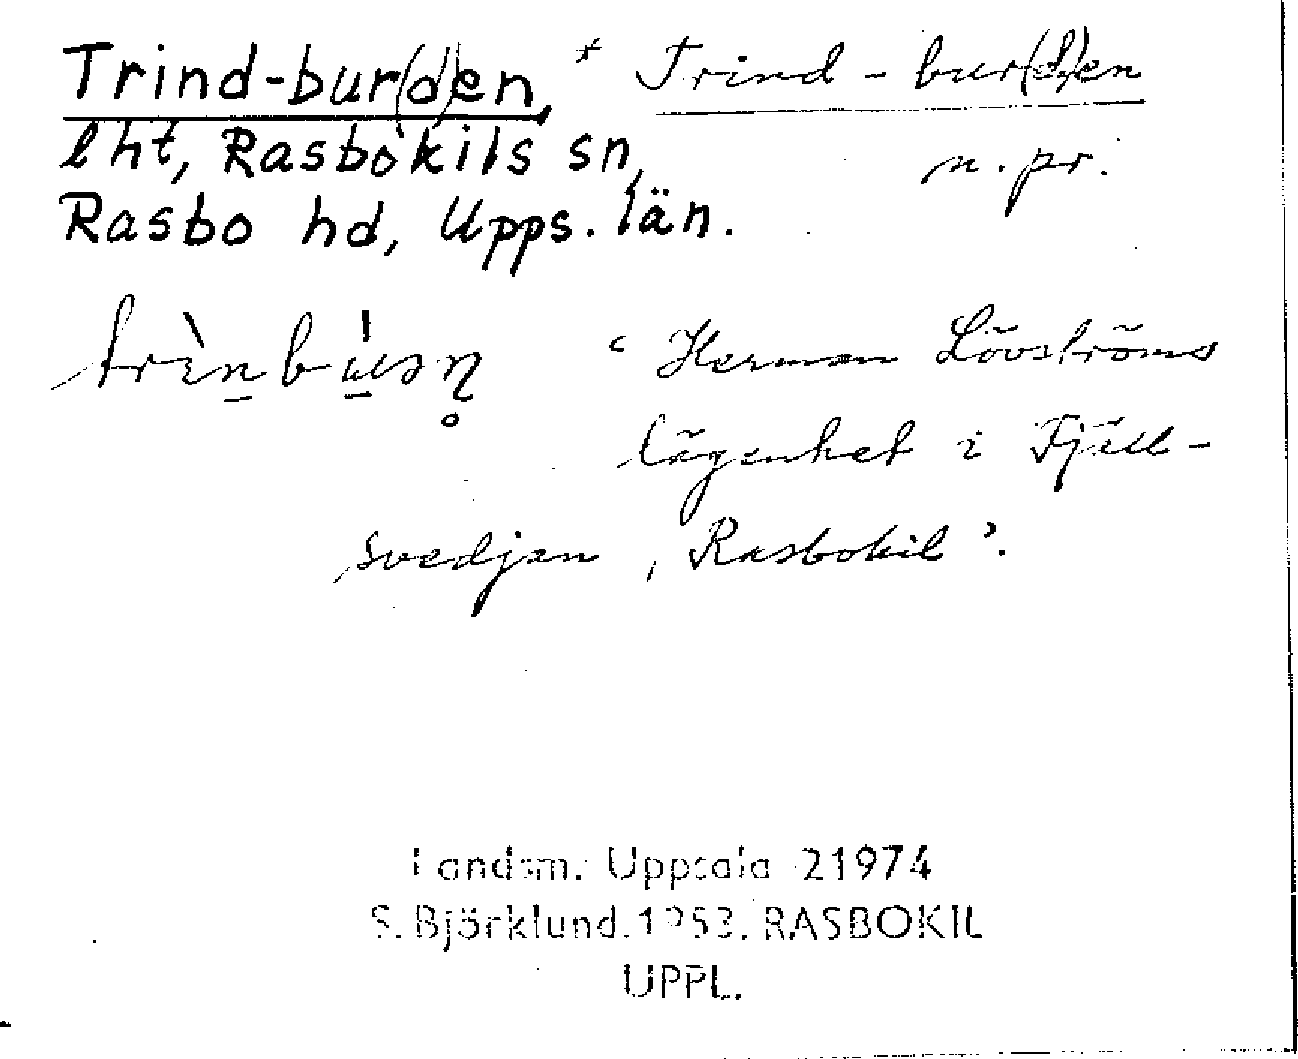 Trind-bur(d)en,
lht, Rasbokils sn,
Rasbo hd, Upps. län.
* Trind-bur(d)en
n. pr.
trìnbúsn̥
‘Herman Lövströms
lägenhet i Fjäll-
svedjan, Rasbokil’.
Landsm. Uppsala 21974
S. Björklund. 1953. RASBOKIL
UPPL.